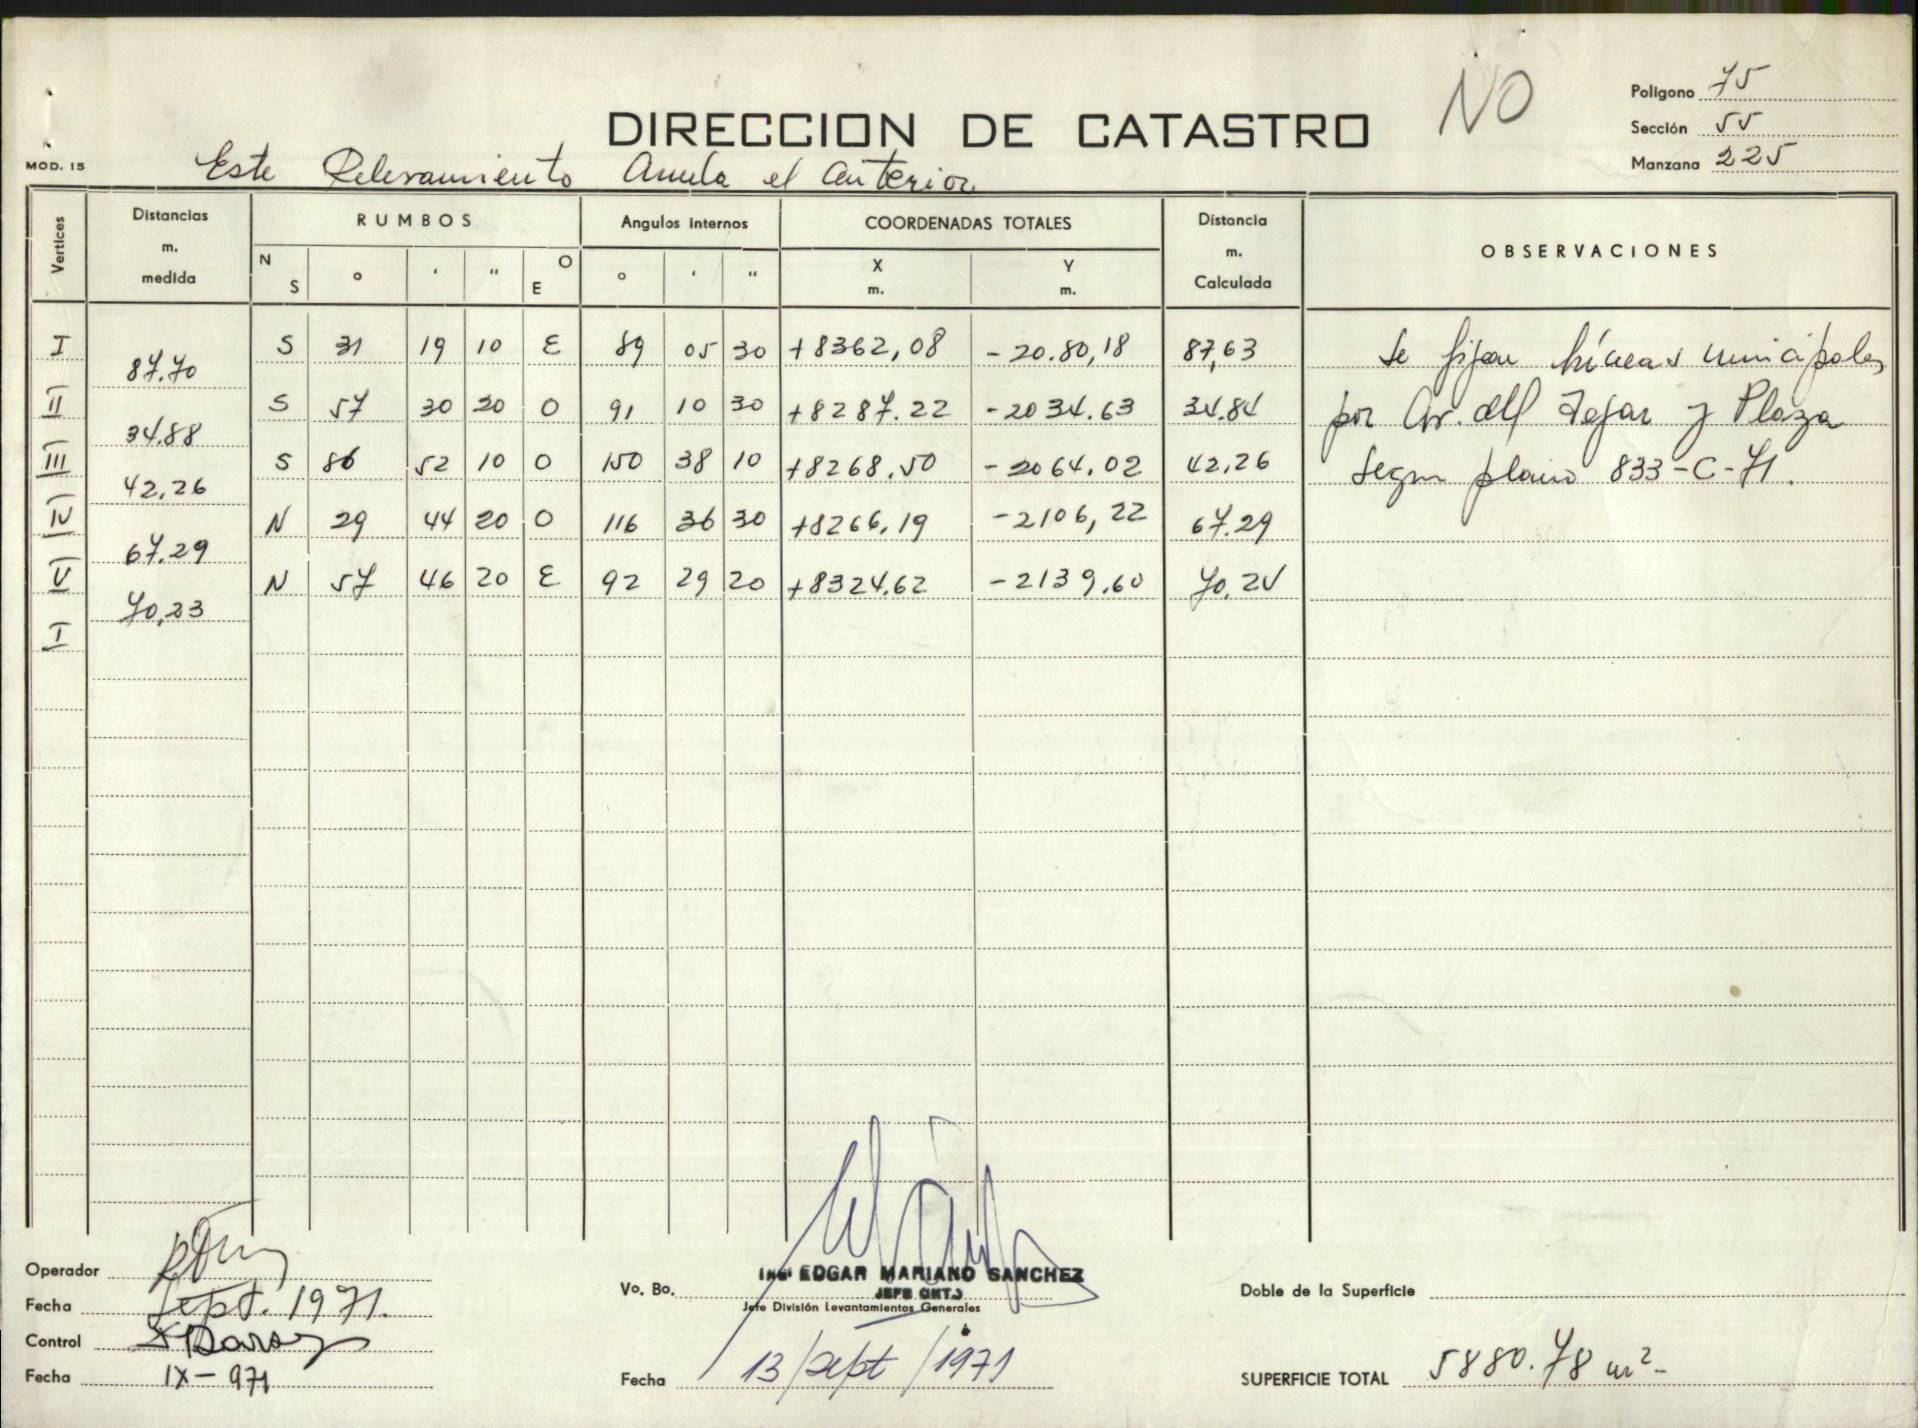 NO
Polígono 75
DIRECCION DE CATASTRO
Sección 55
Manzana 225
MOD. 15
Este Relevamiento Anula el Anterior
Vertices
Distancias m. medida
RUMBOS
Angulos internos
COORDENADAS TOTALES
Distancia m. Calculada
OBSERVACIONES
N S ° ' " O E ° ' " X m. Y m.
I S 31 19 10 E 89 05 30 +8362,08 -20.80,18 87,63 Se fijan Líneas Municipales
87.70
II S 57 30 20 O 91 10 30 +8287.22 -2034.63 34.84 por Av. del Tejar y Plaza
34.88
III S 86 52 10 O 150 38 10 +8268.50 -2064.02 42,26 Segun plano 833-C-71.
42,26
IV N 29 44 20 O 116 36 30 +8266,19 -2106,22 67.29
67.29
V N 57 46 20 E 92 29 20 +8324.62 -2139.60 70,25
70,23
I
Operador
Fecha Sept. 1971.
Control
Fecha IX-971
Vo. Bo. Ing. EDGAR MARIANO SANCHEZ
JEFE
Jefe División Levantamientos Generales
Fecha 13/sept/1971
Doble de la Superficie
SUPERFICIE TOTAL 5880.78 m²-